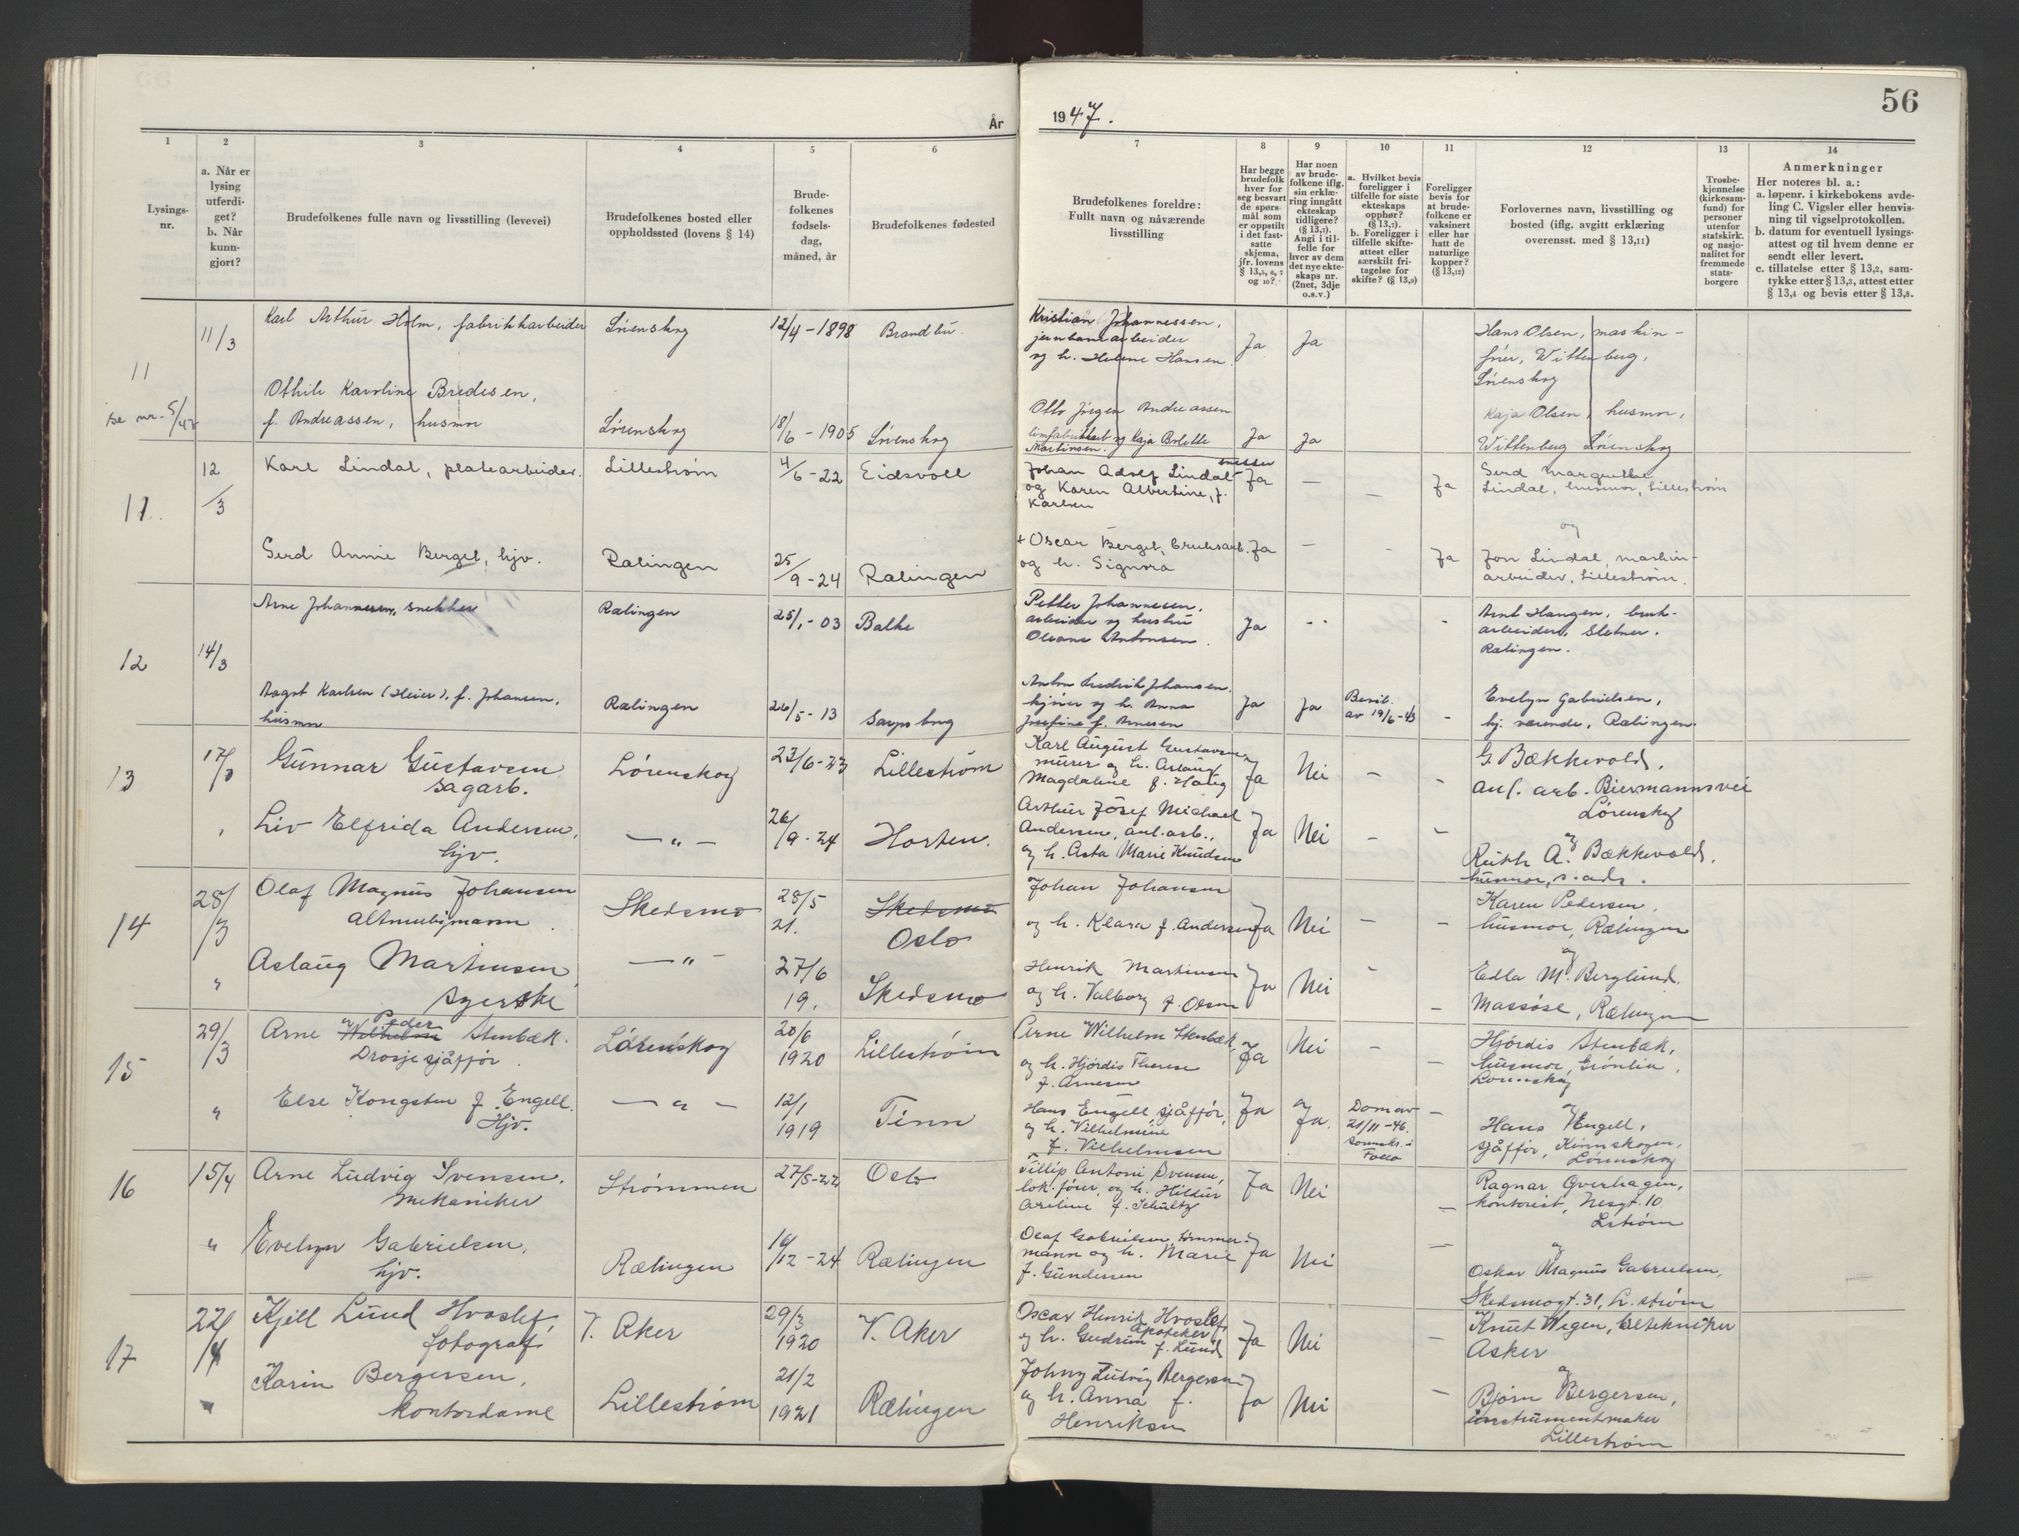 56
År
1947.
1
2
3
4
5
6
7
8
9
10
11
12
13
14
Lysings-
nr.
a. Når er
lysing
utferdi-
get?
b. Når
kunn-
gjort?
Brudefolkenes fulle navn og livsstilling (levevei)
Brudefolkenes bosted eller
oppholdssted (lovens § 14)
Brude-
folkenes
fødsels-
dag,
måned, år
Brudefolkenes fødested
Brudefolkenes foreldre:
Fullt navn og nåværende
livsstilling
Har begge
brudefolk
hver for
seg besvart
de spørs-
mål som
er oppstilt
i det fast-
satte
skjema,
jfr. lovens
§ 13,5, 6, 7
og 10?
Har noen
av brude-
folkene iflg.
sin erklæ-
ring inngått
ekteskap
tidligere?
(§ 13,7).
Angi i til-
felle for
hver av dem
det nye ekte-
skaps nr.
(2net, 3dje
o.s.v.)
a. Hvilket bevis
foreligger i
tilfelle for siste
ekteskaps
opphør?
(§ 13,7)
b. Foreligger i
tilfelle skifte-
attest eller
særskilt fri-
tagelse for
skifte? (§ 13,9)
Foreligger
bevis for
at brude-
folkene er
vaksinert
eller har
hatt de
naturlige
kopper?
(§ 13,12)
Forlovernes navn, livsstilling og
bosted (iflg. avgitt erklæring
overensst. med § 13,11)
Trosbe-
kjennelse
(kirkesam-
fund) for
personer
utenfor
statskirk.
og nasjo-
nalitet for
fremmede
stats-
borgere
Anmerkninger
Her noteres bl. a.:
a. løpenr. i kirkebokens avde-
ling C. Vigsler eller henvis-
ning til vigselprotokollen.
b. datum for eventuell lysings-
attest og til hvem denne er
sendt eller levert.
c. tillatelse etter § 13,2, sam-
tykke etter § 13,3, attest etter
§ 13,4 og bevis etter § 13,8.
11
se nr. 5/47
11/3
Karl Arthur Holm, fabrikkarbeider
Lørenskog
12/4-1898
Brandbu.
Kristian Johannessen,
jernbanearbeider
og h. Helene Hansen.
Ja
Ja
Hans Olsen, maskin-
fører, Wittenberg,
Lørenskog
Othile Karoline Bredesen,
f. Andreassen, husmor
Lørenskog
18/6-1905
Lørenskog
Otto Jørgen Andreassen
limfabrikkarb. og Kaja Bolette
Martinsen.
Ja
Ja
Kaja Olsen, husmor,
Wittenberg Lørenskog
11.
12/3
Karl Lindal, platearbeider
Lillestrøm
4/6-22
Eidsvoll
Johan Adolf Lindal
og Karen Albertine, f.
Karlsen
Ja
-
-
Ja
Gerd Margrethe
Lindal, husmor, Lillestrøm
og
Gerd Annie Berget, hjv.
Rælingen
25/9-24
Rælingen
+ Oscar Berget, bruksarb.
og h. Signora
Ja
-
-
Ja
Jon Lindal, maskin-
arbeider, Lillestrøm.
12
14/3
Arne Johannesen, snekker
Rælingen
25/1-03
Balke
Petter Johannesen,
arbeider og hustru
Oleane Antonsen.
Ja
-
-
Arnt Haugen, bruk-
arbeider, Sletner.
Rælingen.
Aagot Karlsen (Heier), f. Johansen,
husmor
Rælingen
26/5-13
Sarpsborg
Anton Fredrik Johansen,
kjører og h. Anna
Josefine f. Arnesen
Ja
Ja
Bevil.
av 19/6-43
-
Evelyn Gabrielsen,
hj. værende, Rælingen.
13
17/3
Gunnar Gustavsen
sagarb.
Lørenskog
23/6-23
Lillestrøm
Karl August Gustavsen
murer og h. Aslaug
Magdaline f. Haug
Ja
Nei
-
-
G. Bækkevold,
anl. arb. Biermannsvei
Lørenskog
og
Liv Elfrida Andersen,
hjv.
-"-
26/9-24
Horten.
Arthur Josef Michael
Andersen, anl.arb.,
og h. Asta Marie Knudsen
Ja
Nei
-
-
Ruth A. Bækkevold,
husmor, s. ads.
14
28/3
Olaf Magnus Johansen
altmuligmann
Skedsmo
28/5
21.
Skedsmo
Oslo
Johan Johansen
og h. Klara f. Andersen
Ja
Nei
-
-
Karen Pedersen,
husmor, Rælingen
og
"
Aslaug Martinsen,
syerske
-"-
27/6
19.
Skedsmo
Henrik Martinsen
og h. Valborg f. Olsen
Ja
Nei
-
-
Edla M. Berglund.
Massøse, Rælingen
15
29/3
Arne Peder Wilhelm Stenbæk.
Drosjesjåfør.
Lørenskog
20/6
1920
Lillestrøm
Arne Wilhelm Stenbæk,
og h. Hjördis Therese
f. Arnesen
Ja
Nei
-
-
Hjördis Stenbæk,
husmor, Grönlia,
Lørenskog
og
"
Else Kongsten f. Engell.
Hjv.
-"-
12/1
1919
Tinn
Hans Engell, sjåfför,
og h. Vilhelmine
f. Vilhelmsen
Ja
Ja.
Dom av
21/11-46.
Sorenskr. i
Follo
-
Hans Engell,
sjåfför, Kinnskogen,
Lørenskog
16
15/4
Arne Ludvig Svensen,
mekaniker
Strømmen
27/5-22
Oslo
Fillip Antoni Svensen,
lok. fører, og h. Hildur
Areline f. Schultz
Ja
Nei
-
Ragnar Qverhagen,
kontorist, Nesgt. 10
L.strøm
og
"
Evelyn Gabrielsen,
hjv.
Rælingen
16/12-24
Rælingen
Olaf Gabrielsen, tømmer-
mann og h. Marie
f. Gundersen
Ja
Nei
-
Oskar Magnus Gabrielsen,
Skedsmogt. 31, L. strøm
17
22/4
Kjell Lund Hvoslef,
fotograf
V. Aker
29/3
1920
V. Aker
Oscar Henrik Hvoslef,
Apoteker
og h. Gudrun f. Lund
Ja
Nei
-
Knut Wigen, eltekniker
Asker
og
"
Karin Bergersen,
kontordame
Lillestrøm
21/2
1921
Rælingen
Johny Ludvig Bergersen
og h. Anna f.
Henriksen
Ja
Nei
-
Bjørn Bergersen,
instrumentmaker
Lillestrøm